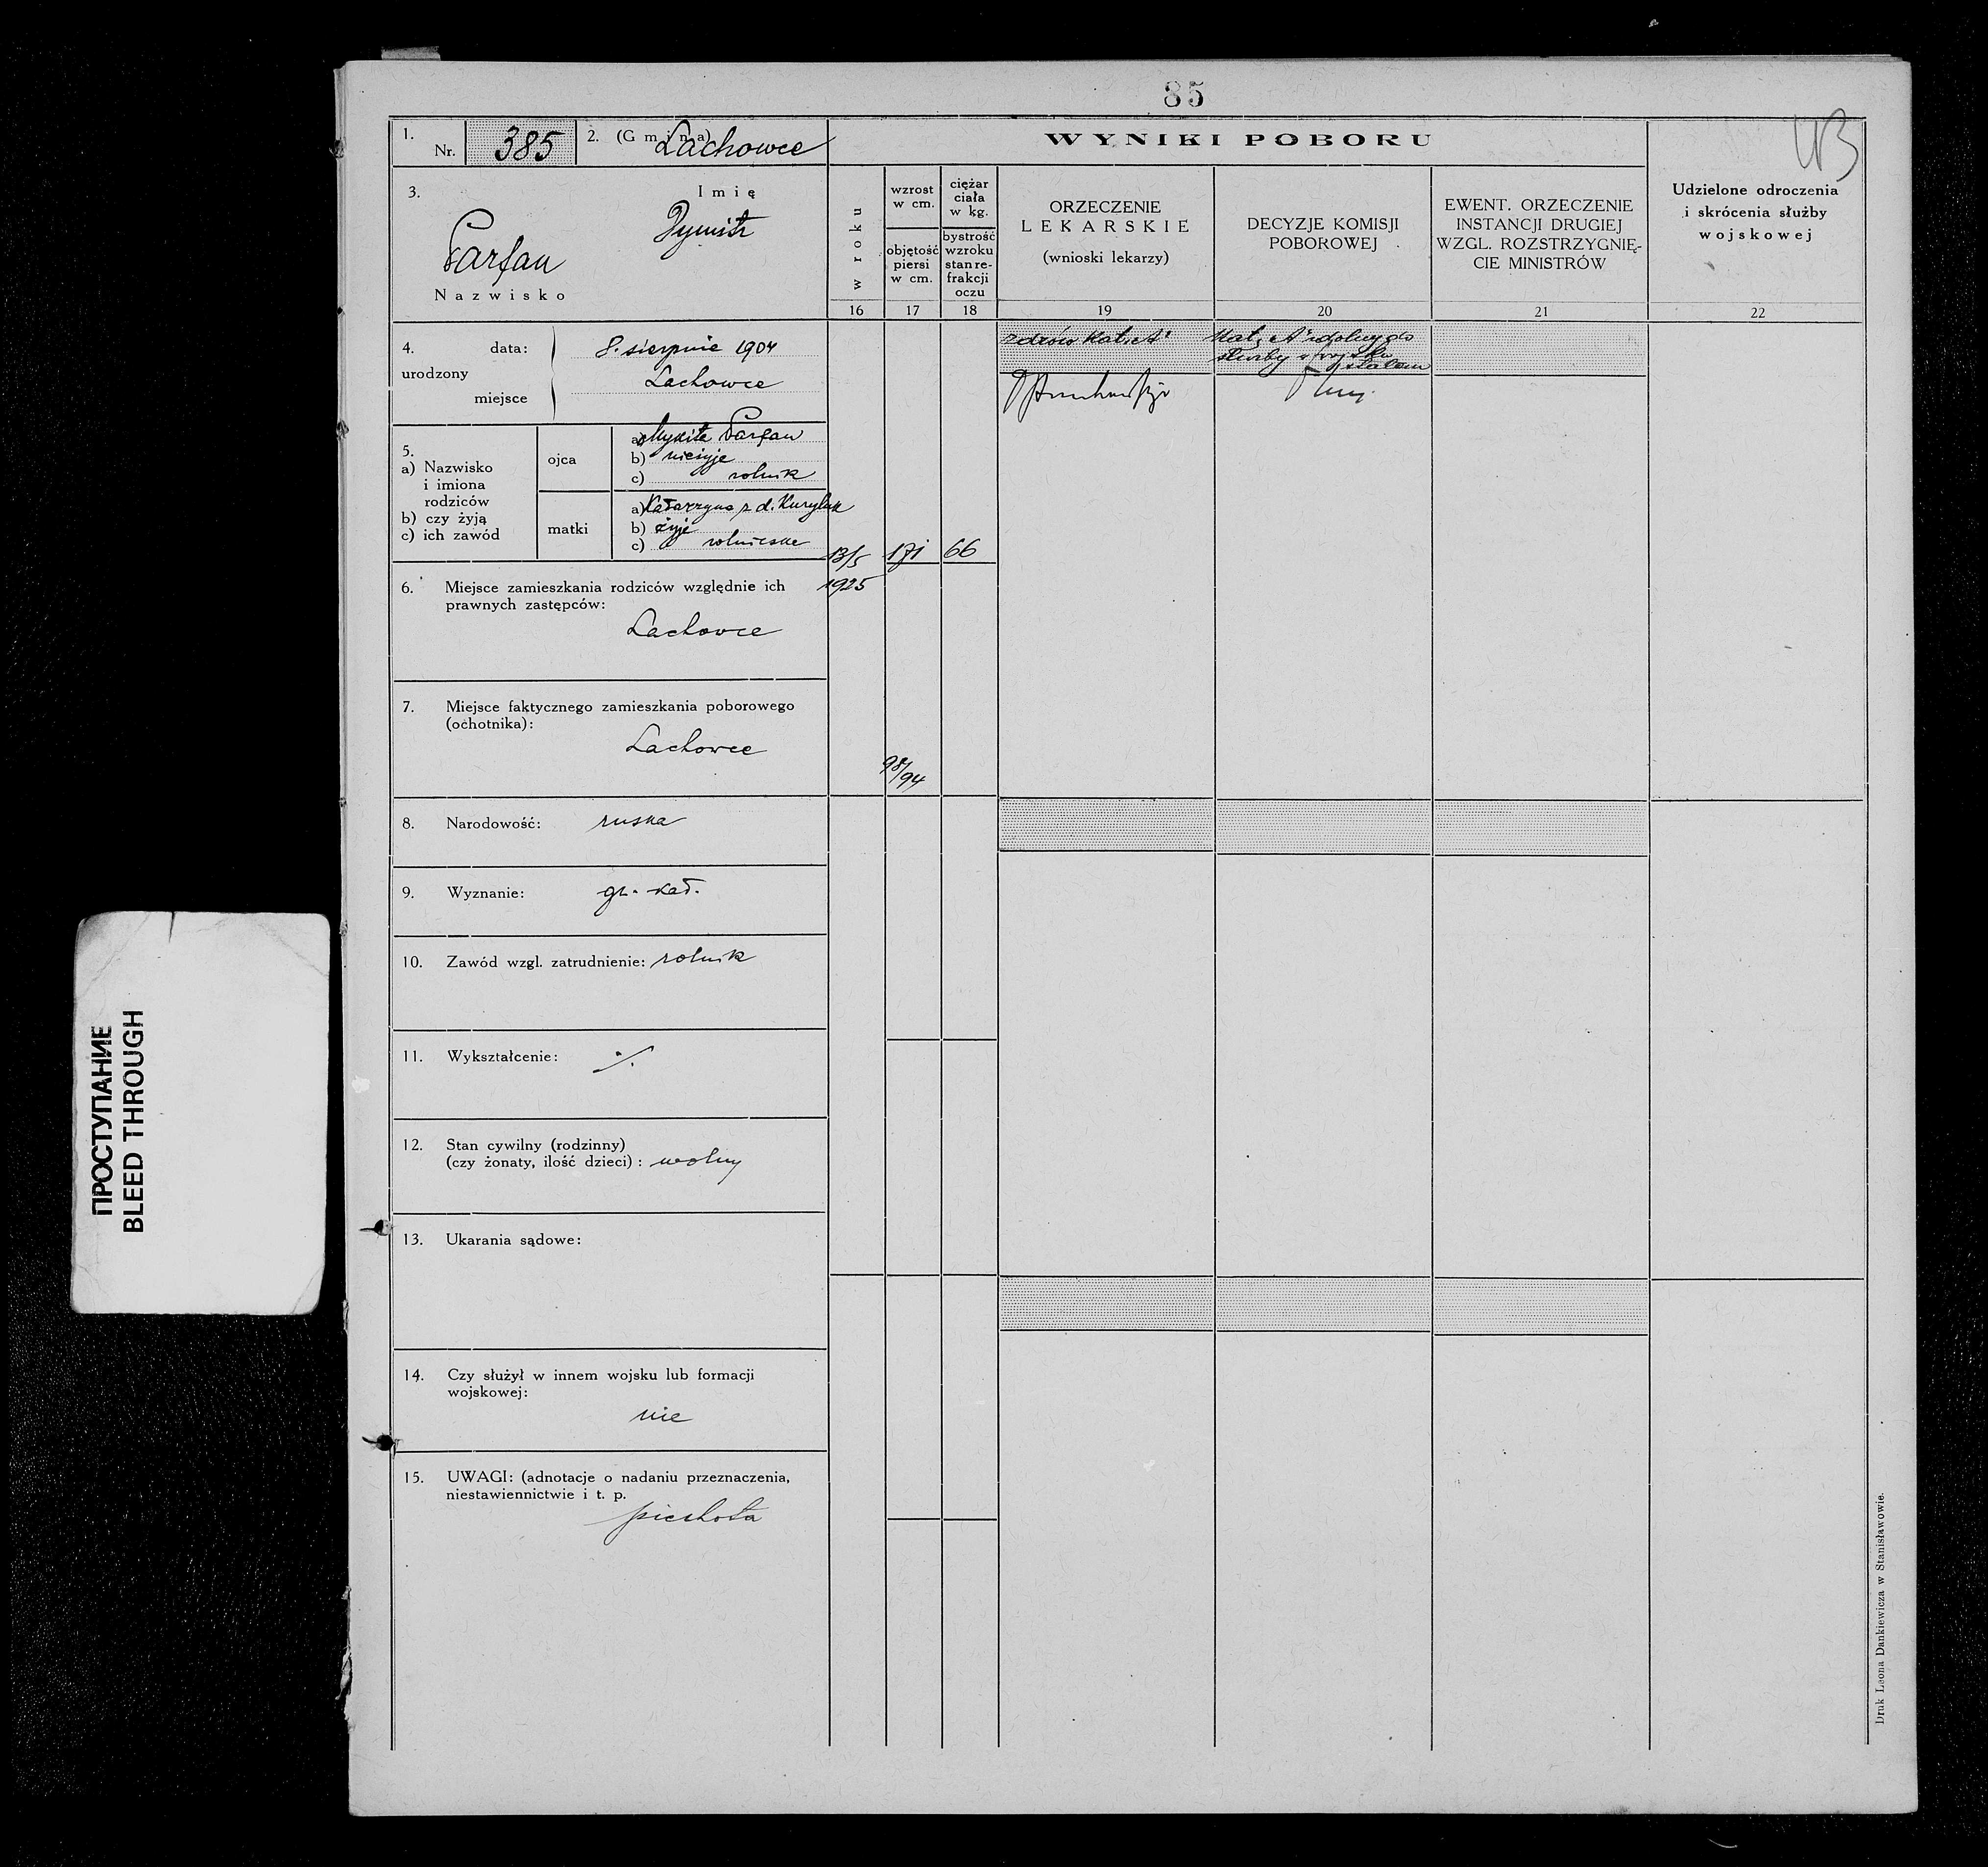 85
1.
Nr. 385
2. (Gmina) Lachowce
WYNIKI POBORU
3.
Imię
Dymitr
Parfan
Nazwisko
w roku
wzrost
w cm.
objętość
piersi
w cm.
ciężar
ciała
w kg.
bystrość
wzroku
stan re-
frakcji
oczu
ORZECZENIE
LEKARSKIE
(wnioski lekarzy)
DECYZJE KOMISJI
POBOROWEJ
EWENT. ORZECZENIE
INSTANCJI DRUGIEJ
WZGL. ROZSTRZYGNIĘ-
CIE MINISTRÓW
Udzielone odroczenia
i skrócenia służby
wojskowej
16 17 18 19 20 21 22
4.
urodzony
data: 8. sierpnia 1904
miejsce Lachowce
zdrów Kat. „A"
Kat. „A" zdolny do
służby w wojsku
stałem
5.
a) Nazwisko
i imiona
rodziców
b) czy żyją
c) ich zawód
ojca
a) Mykita Parfan
b) nieżyje
c) rolnik
matki
a) Katarzyna z d. Kurylak
b) żyje
c) rolniczka
13/5
1925
171
66
6. Miejsce zamieszkania rodziców względnie ich
prawnych zastępców:
Lachowce
7. Miejsce faktycznego zamieszkania poborowego
(ochotnika):
Lachowce
98/94
8. Narodowość: ruska
9. Wyznanie: gr. kat.
10. Zawód wzgl. zatrudnienie: rolnik
11. Wykształcenie: ./.
12. Stan cywilny (rodzinny)
(czy żonaty, ilość dzieci): wolny
13. Ukarania sądowe:
14. Czy służył w innem wojsku lub formacji
wojskowej:
nie
15. UWAGI: (adnotacje o nadaniu przeznaczenia,
niestawiennictwie i t. p.
piechota
Druk Leona Dankiewicza w Stanisławowie.
ПРОСТУПАНИЕ
BLEED THROUGH